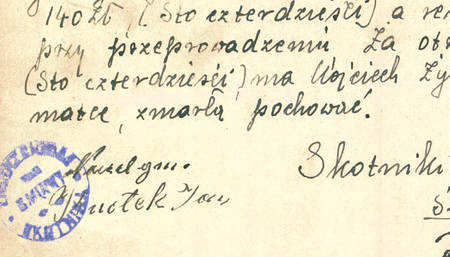 140 zł, (Sto czterdzieści) a re
przy przeprowadzeniu Za ot
(Sto czterdzieści) ma Wojciech Ży
matce, zmarłą pochować.
Skotniki